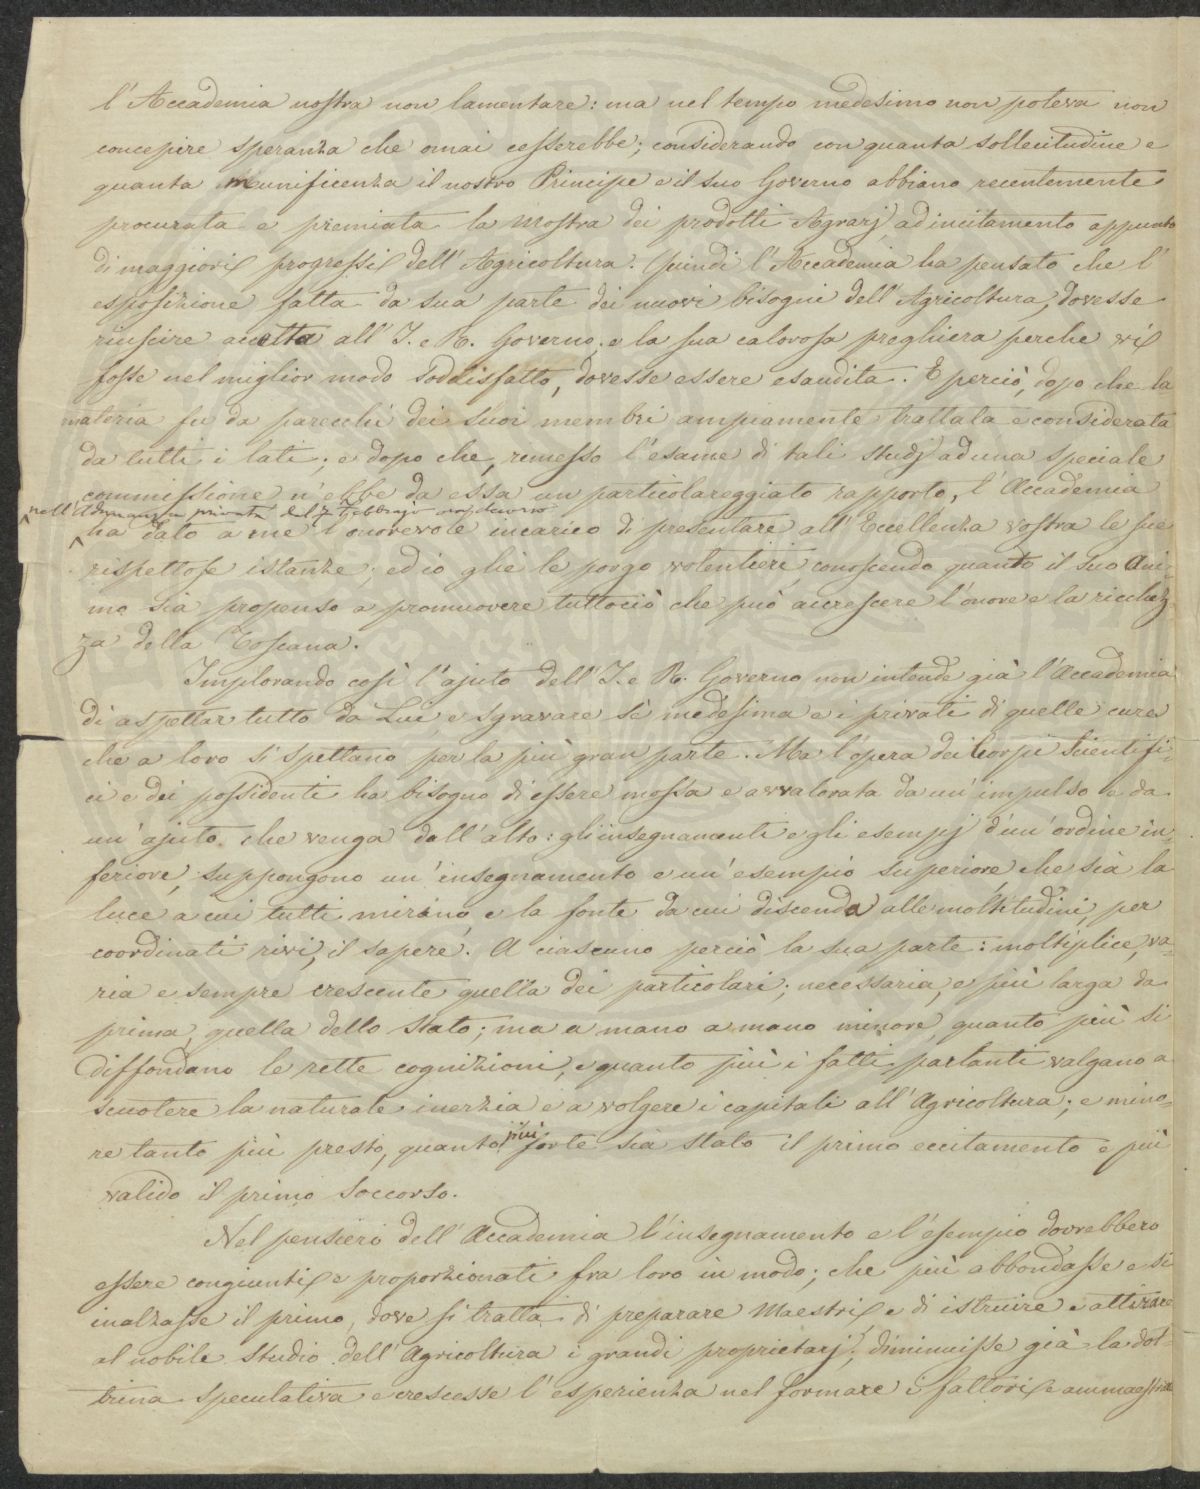 l'Accademia nostra non lamentare: ma nel tempo medesimo non poteva non
concepire speranza che omai cesserebbe; considerando con quanta sollecitudine e
quanta munificenza il nostro Principe e il suo Governo abbiano recentemente
procurata e premiata la Mostra dei prodotti Agrarj ad incitamento appunto
di maggiori progressi dell'Agricoltura. Quindi l'Accademia ha pensato che l'
esposizione fatta da sua parte dei nuovi bisogni dell'Agricoltura, dovesse
riuscire accetta all'I. e R. Governo; e la sua calorosa preghiera perche vi
fosse nel miglior modo soddisfatto, dovesse essere esaudita. E perciò, dopo che la
materia fu da parecchi dei suoi membri ampiamente trattata e considerata
da tutti i lati; e dopo che, remesso l'esame di tali studj ad una speciale
commissione n'ebbe da essa un particolareggiato rapporto, l'Accademia
nell'Adunanza privata del 7 Febbrajo
ha dato a me l'onorevole incarico di presentare all'Eccellenza vostra le sue
rispettose istanze; ed io glie le porgo volentieri, conoscendo quanto il suo Ani-
mo sia propenso a promuovere tuttociò che può accrescere l'onore e la ricchez
za della Toscana.
Implorando così l'ajuto dell'I. e R. Governo non intende già l'Accademia
di aspettar tutto da Lui, e sgravare sè medesima e i privati di quelle cure
che a loro si spettano per la più gran parte. Ma l'opera dei Corpi Scientifi-
ci e dei possidenti ha bisogno di essere mossa e avvalorata da un'impulso e da
un'ajuto, che venga dall'alto: gli insegnamenti e gli esempj d'un'ordine in-
feriore, suppongono un'insegnamento e un'esempio superiore che sia la
luce a cui tutti mirino, e la fonte da cui discenda alle moltitudini, per
coordinati rivi, il sapere. A ciascuno perciò la sua parte: moltiplice, va-
ria e sempre crescente quella dei particolari; necessaria, e più larga da
prima, quella dello Stato; ma a mano a mano minore, quanto più si
diffondano le rette cognizioni, e quanto più i fatti parlanti valgano a
scuotere la naturale inerzia e a volgere i capitali all'Agricoltura; e mino-
re tanto più presto, quanto più forte sia stato il primo eccitamento e più
valido il primo soccorso.
Nel pensiero dell'Accademia l'insegnamento e l'esempio dovrebbero
essere congiunti e proporzionati fra loro in modo; che più abbondasse e si
inalzasse il primo, dove si tratta di preparare Maestri, e di istruire e attirare
al nobile studio dell'Agricoltura i grandi proprietarj; diminuisse già la dot-
trina speculativa e crescesse l'esperienza nel formare i fattori e